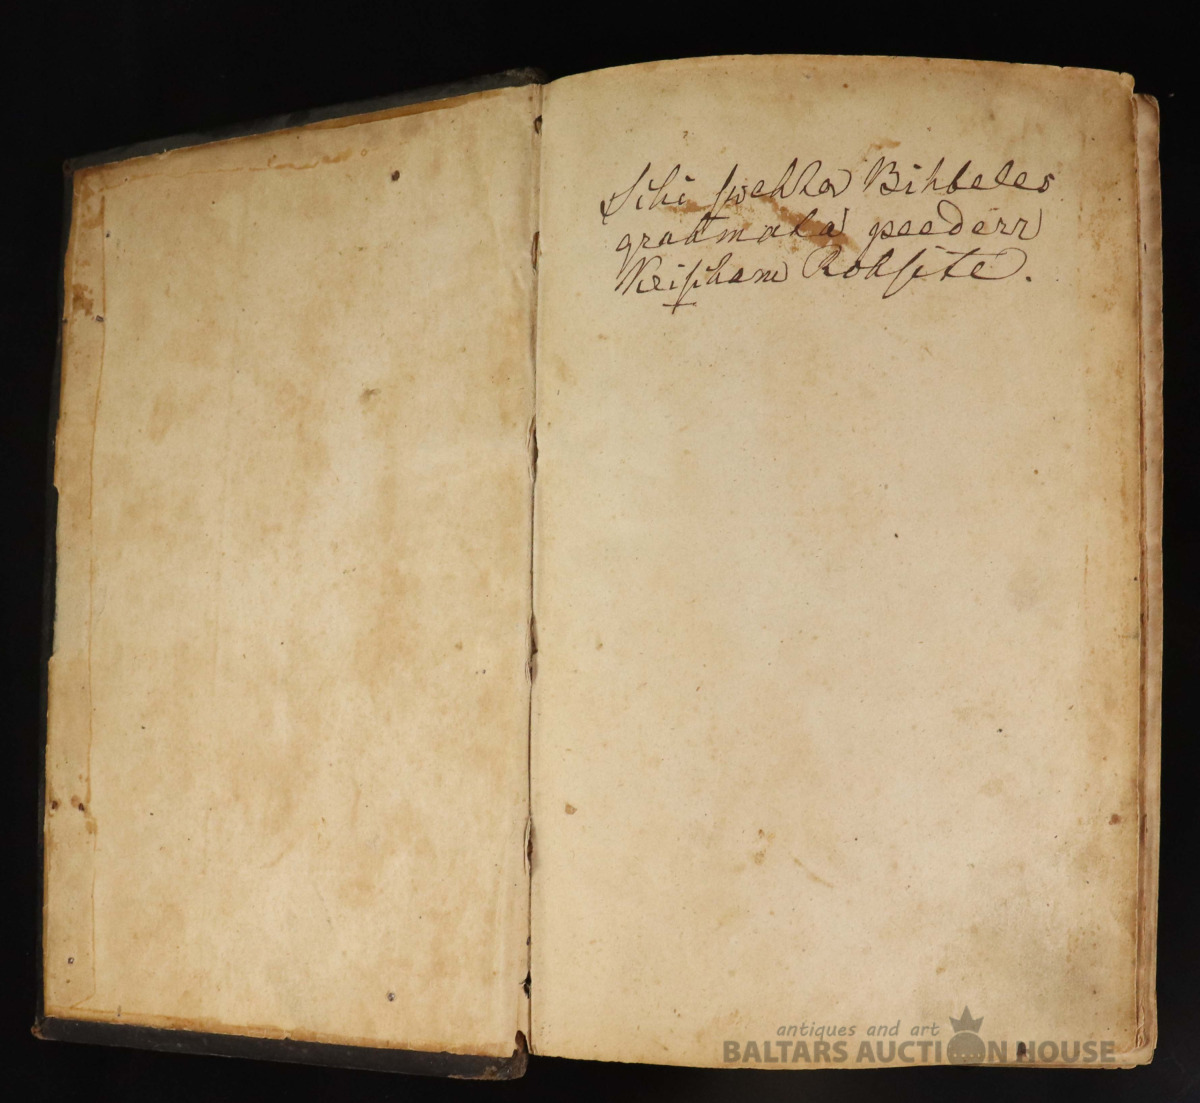 Schi swehta Bihbeles
grahmata peederr
Reinham Rohsite.
antiques and art
BALTARS AUCTION HOUSE